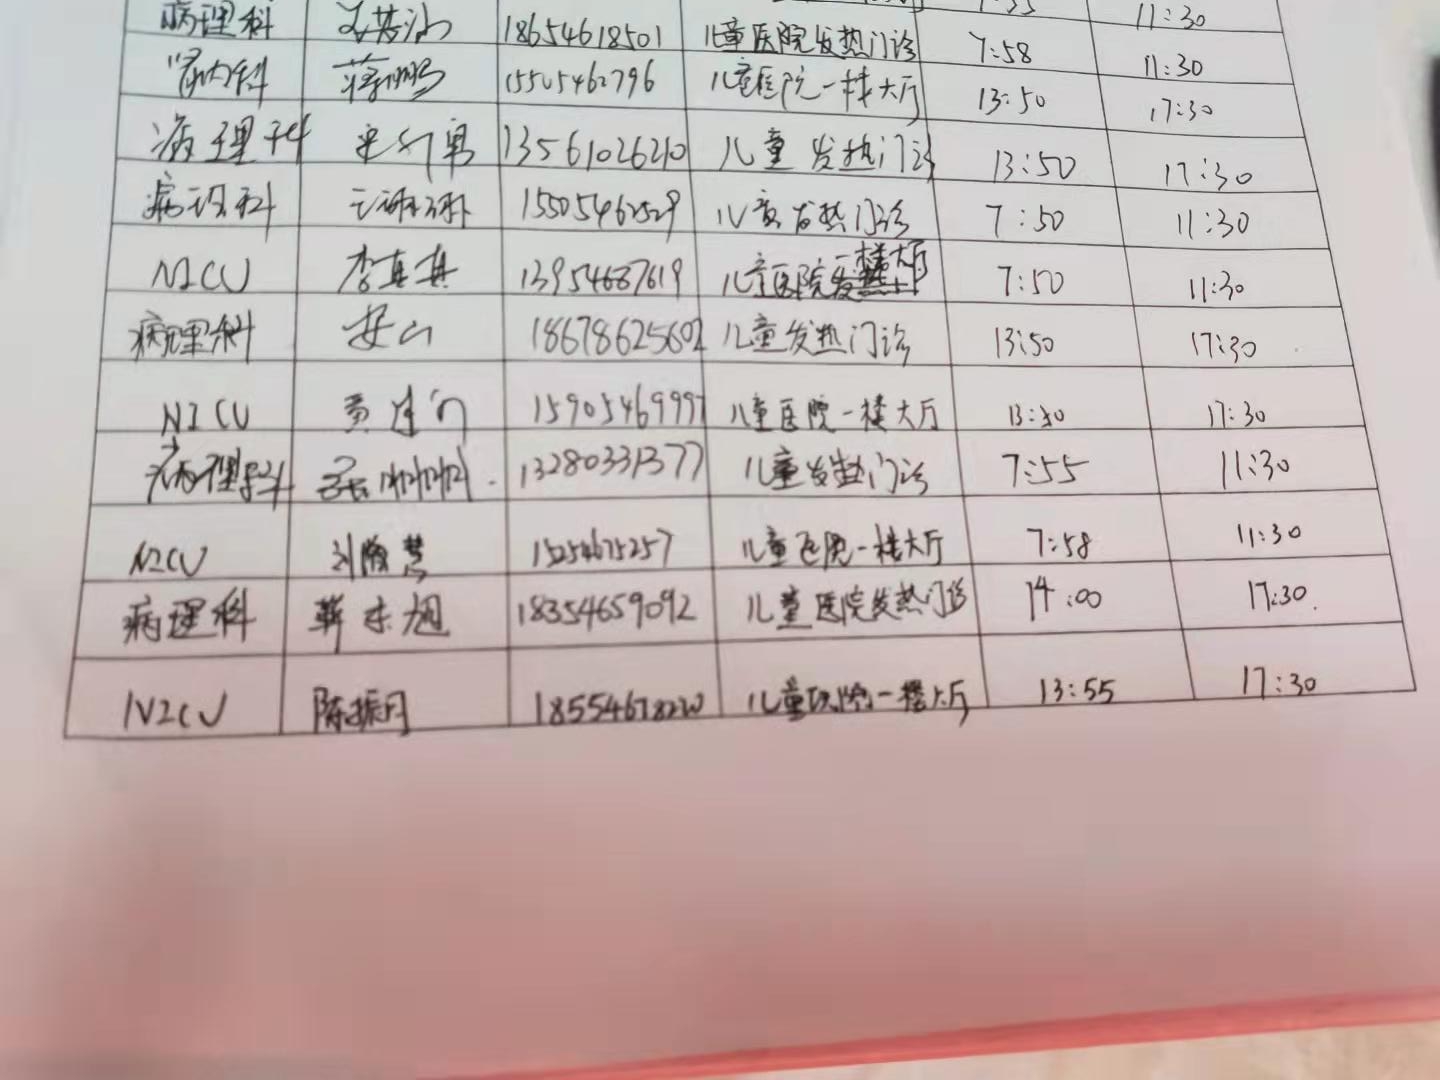 病理科 18654618501 儿童医院发热门诊 7:55 11:30
肾内科 蒋鹏 15505462796 儿童医院一楼大厅 7:58 11:30
病理科 13561026210 儿童发热门诊 13:50 17:30
病理科 15505462529 儿童发热门诊 7:50 11:30
NICU 李真真 13954687619 儿童医院一楼大厅 7:50 11:30
病理科 安山 18678625602 儿童发热门诊 13:50 17:30
NICU 15905469997 儿童医院一楼大厅 13:50 17:30
病理科 13280331377 儿童发热门诊 7:55 11:30
NICU 15254675257 儿童医院一楼大厅 7:58 11:30
病理科 18354659092 儿童医院发热门诊 14:00 17:30
NICU 陈振月 18554678220 儿童医院一楼大厅 13:55 17:30